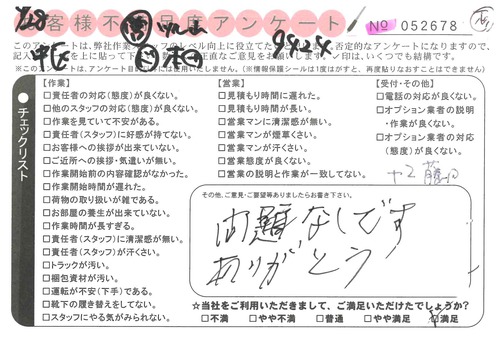 お客様不満足度アンケート
№ 052678
このアンケートは、弊社作業スタッフのレベル向上に役立てたい
否定的なアンケートになりますので、
正直なご意見をお願いします。✓印は、いくつでも結構です。
(※情報保護シールは1度はがすと、再度貼りなおすことはできません)
チェックリスト
【作業】
□責任者の対応(態度)が良くない。
□他のスタッフの対応(態度)が良くない。
□作業を見ていて不安がある。
□責任者(スタッフ)に好感が持てない。
□お客様への挨拶が出来ていない。
□ご近所への挨拶・気遣いが無い。
□作業開始前の内容確認がなかった。
□作業開始時間が遅れた。
□荷物の取り扱いが雑である。
□お部屋の養生が出来ていない。
□作業時間が長すぎる。
□責任者(スタッフ)に清潔感が無い。
□責任者(スタッフ)が汗くさい。
□トラックが汚い。
□梱包資材が汚い。
□運転が不安(下手)である。
□靴下の履き替えをしてない。
□スタッフにやる気がみられない。
【営業】
□見積もり時間に遅れた。
□見積もり時間が長い。
□営業マンに清潔感が無い。
□営業マンが煙草くさい。
□営業マンが汗くさい。
□営業態度が良くない。
□営業の説明と作業が一致してない。
【受付・その他】
□電話の対応が良くない。
□オプション業者の説明
・作業が良くない。
□オプション業者の対応
(態度)が良くない。
その他、ご意見・ご要望等ありましたらお書き下さい。
問題なしです
ありがとう
☆当社をご利用いただきまして、ご満足いただけたでしょうか?
□不満 □やや不満 □普通 □やや満足 □満足